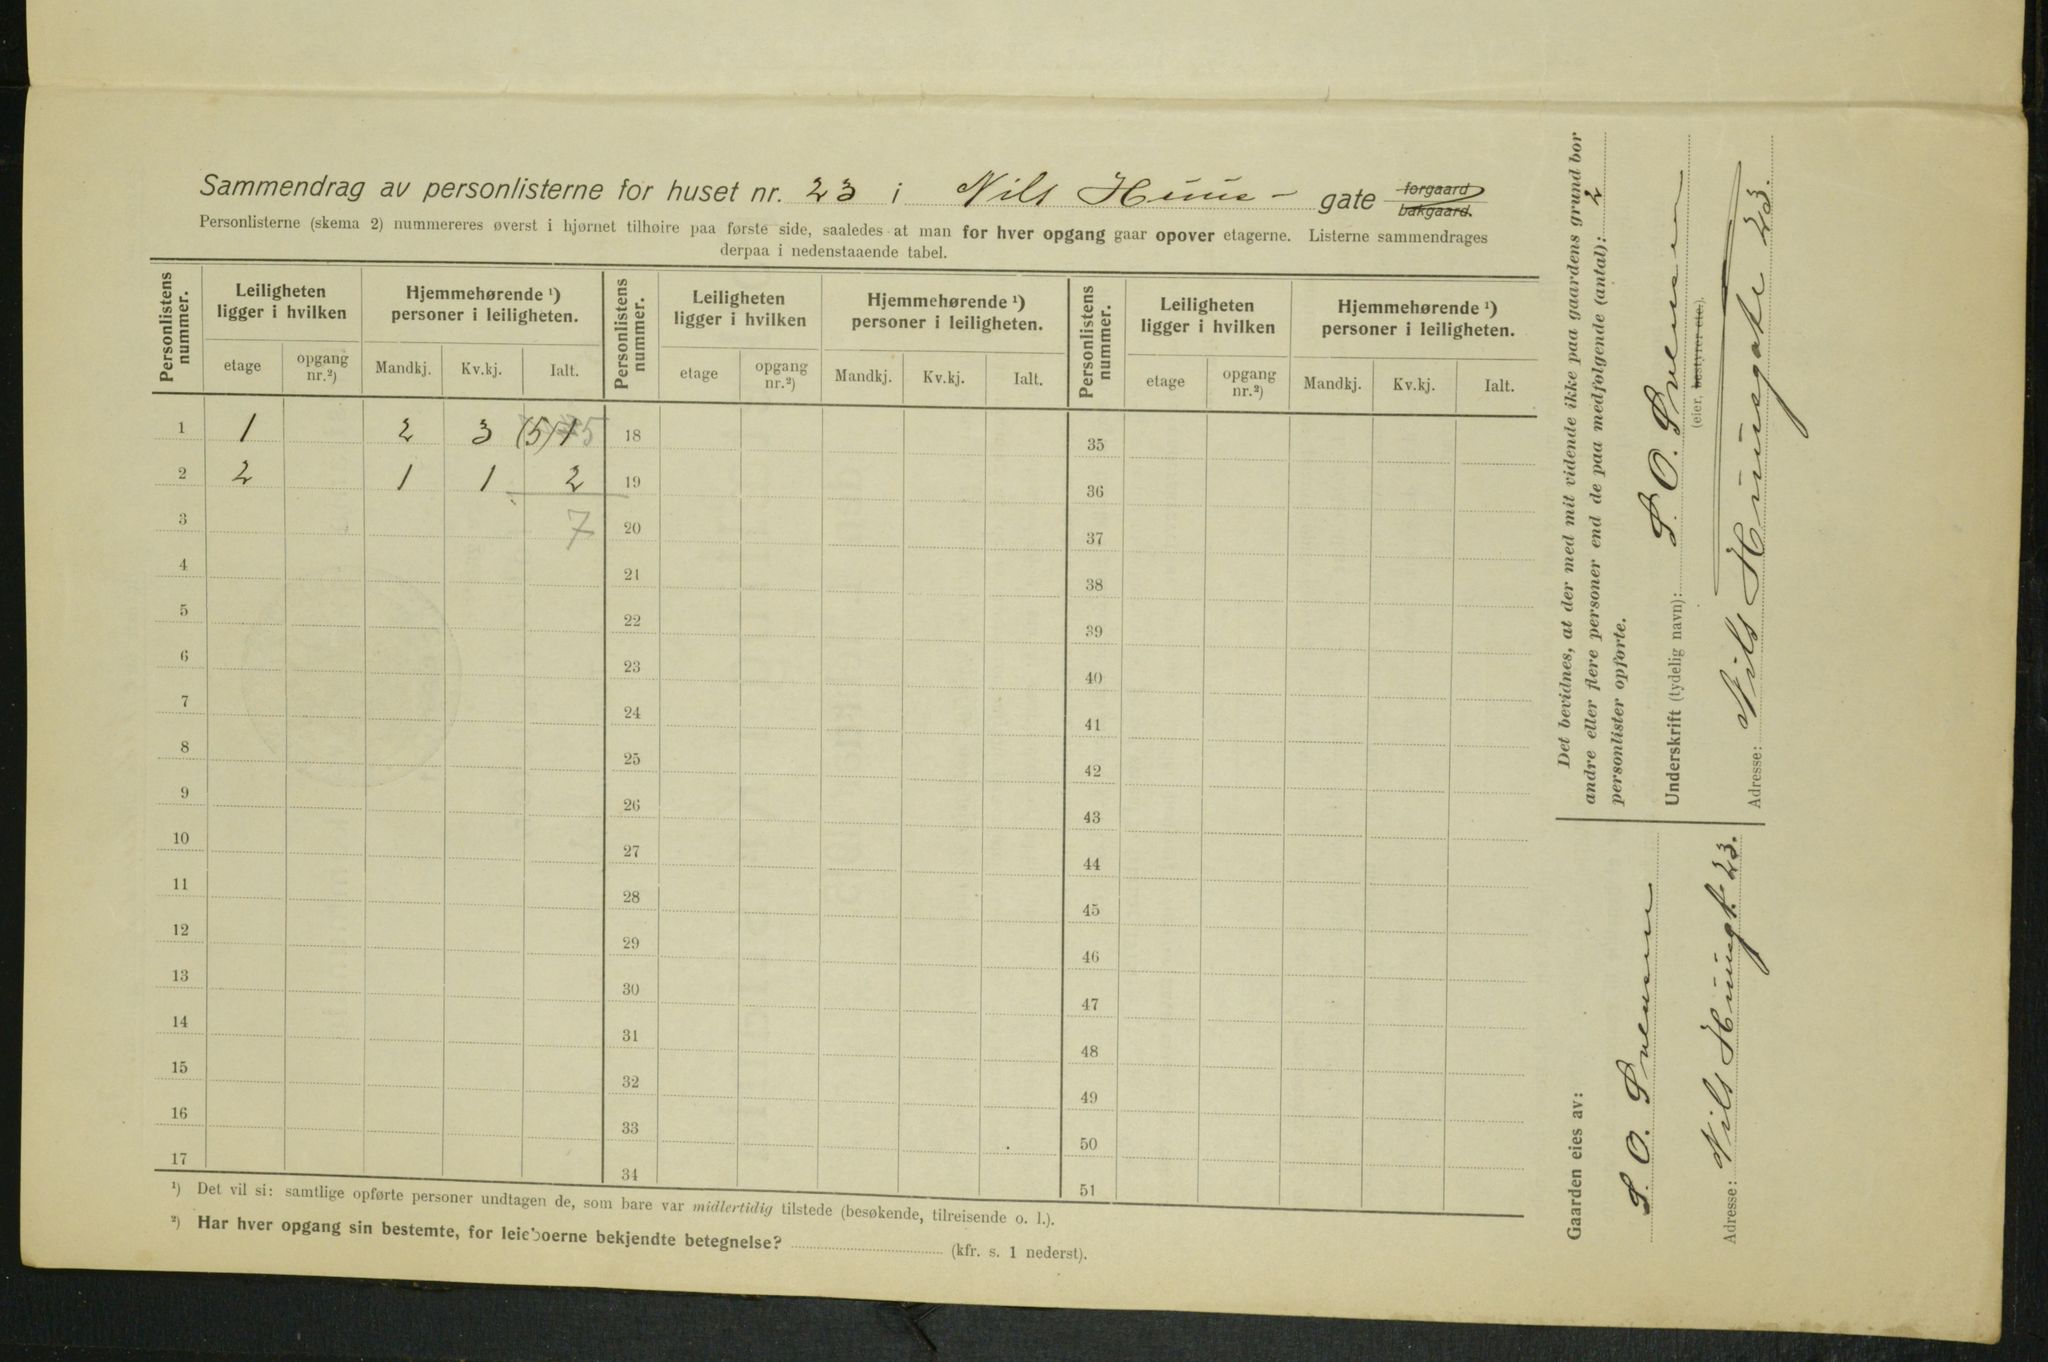 Sammendrag av personlisterne for huset nr. 23 i Nils Huus- gate forgaard bakgaard.
Personlisterne (skema 2) nummereres øverst i hjørnet tilhøire paa første side, saaledes at man for hver opgang gaar opover etagerne. Listerne sammendrages
derpaa i nedenstaaende tabel.
Personlistens nummer. Leiligheten ligger i hvilken Hjemmehørende ¹) personer i leiligheten. Personlistens nummer. Leiligheten ligger i hvilken Hjemmehørende ¹) personer i leiligheten. Personlistens nummer. Leiligheten ligger i hvilken Hjemmehørende ¹) personer i leiligheten.
etage opgang nr.²) Mandkj. Kv.kj. Ialt. etage opgang nr.²) Mandkj. Kv.kj. Ialt. etage opgang nr.²) Mandkj. Kv.kj. Ialt.
1 1 2 3 (5) 5 18 35
2 2 1 1 2 19 36
3 7 20 37
4 21 38
5 22 39
6 23 40
7 24 41
8 25 42
9 26 43
10 27 44
11 28 45
12 29 46
13 30 47
14 31 48
15 32 49
16 33 50
17 34 51
¹) Det vil si: samtlige opførte personer undtagen de, som bare var midlertidig tilstede (besøkende, tilreisende o. l.).
²) Har hver opgang sin bestemte, for leieboerne bekjendte betegnelse? (kfr. s. 1 nederst).
Det bevidnes, at der med mit vidende ikke paa gaardens grund bor
andre eller flere personer end de paa medfølgende (antal): 2
personlister opførte.
Underskrift (tydelig navn): S. O. Svensen
(eier, bestyrer etc).
Adresse: Nils Huusgate 23.
Gaarden eies av:
S. O. Svensen
Adresse: Nils Huusgt. 23.